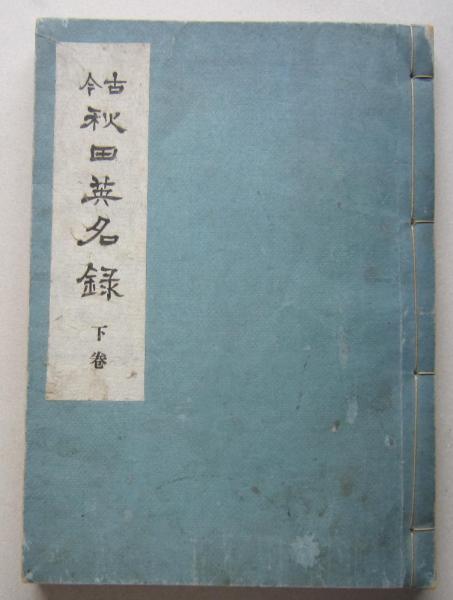 古今
秋田英名録
下卷